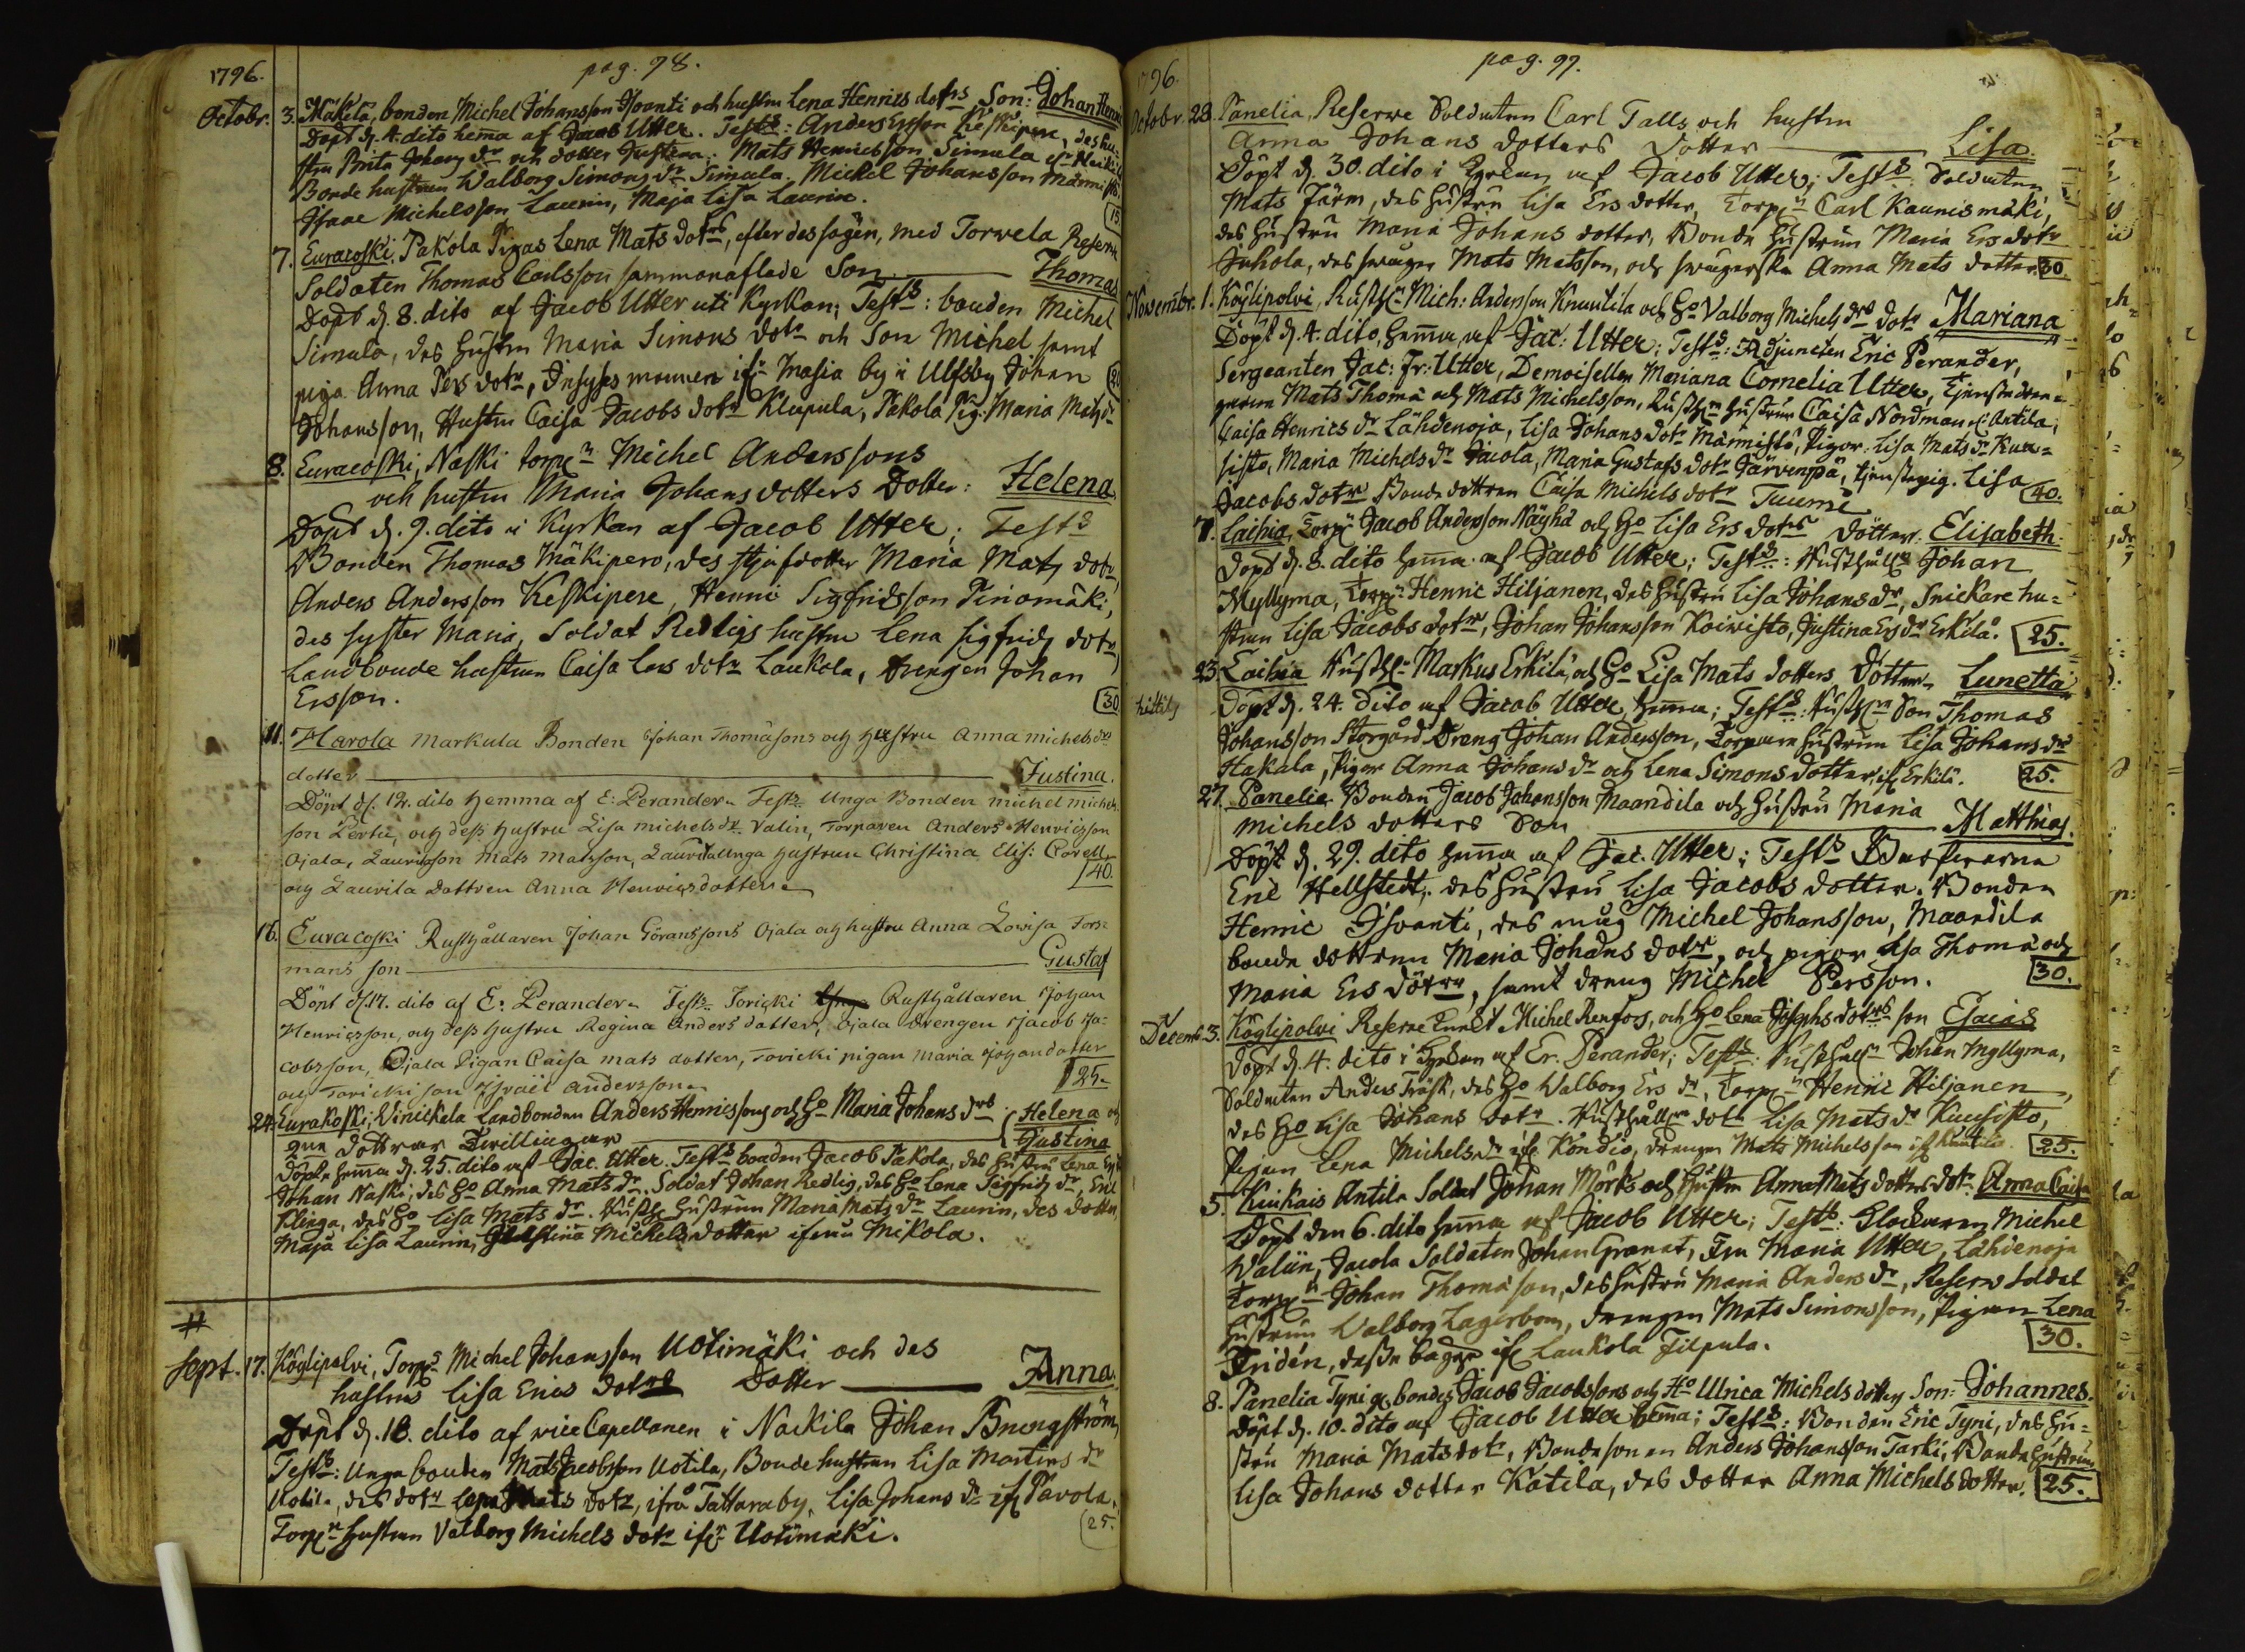 pag. 98.
1796.
Octobr. 3. Mäkelä, bonden Michel Johansson Isvanti och hustru Lena Henrics dotrs Son: Johan Henric
Döpt d. 4. dito hema af Jacob Utter. Test: Anders Ersson Keskipere, des hu-
stru Brita Johans dr och dotter Justina. Mats Henricsson Simula
Bonde hustrun Walborg Simons dr Simula. Michel Johansson Männistö
Isaac Michelsson Laurin, Maja Lisa Laurin. 15
7. Euracoski. Pakola Pigas Lena Mats dotrs, efter des sägen, med Torwela Reserve
Soldaten Thomas Carlsson sammanaflade Son Thomas
Döpt d. 8. dito af Jacob Utter uti Kyrkan; Test: bonden Michel
Simula, des hustru Maria Simons dotr och Son Michel samt
piga Anna Pers dotr, Inhyses mannen ifr Masia by i Ulfsby Johan
Johansson, Hustru Caisa Jacobs dotr Klupula, Pakola Pig. Maria Mats dr
8. Euracoski, Naski torpn Michel Anderssons
och hustru Maria Johans dotters Dotter: Helena
Döpt d. 9. dito i Kyrkan af Jacob Utter; Test
Bonden Thomas Mäkipere, des styfdotter Maria Mats dotr
Anders Andersson Keskipere, Henric Sigfridsson Pinomäki,
des syster Maria, Soldat Redligs hustru Lena Sigfrids dotr
Landbonde hustrun Caisa Lars dotr Laukola, drengen Johan
Ersson. 30
11. Harola Markula Bonden Johan Thomasons och Hustru Anna Michels drs
dotter Justina.
Döpt d. 12. dito hemma af E: Perander. Test. Unga Bonden Michel Michels-
son Pertu, och dess Hustru Lisa Michelsdr Valin, Torparen Anders Henricsson
Ojala, Lauridsson Mats Matsson, Laurila Unga Hustrun Christina Elis: Corell
och Laurila Dottren Anna Henricsdotter. 40.
16. Euracoski Rusthållaren Johan Göranssons Ojala och hustru Anna Lovisa Fors-
mans son Gustaf
Döpt d. 17. dito af E: Perander. Test. Toricki Rusthållaren Johan
Henricsson, och dess Hustru Regina Anders dotter, Ojala drengen Jacob Ja-
cobsson, Ojala Pigan Caisa Mats dotter, Toricki pigan Maria Johansdotter
och Toricki son Israel Andersson. 25.
24. Eurakoski, Winickela Landbonden Anders Henrissons och Ho Maria Johans drs Helena och
Dottrar Twillingar Justina
Döpte hema d. 25. dito af Jac. Utter. Test bonden Jacob Pakola, des hustru Lena
Johan Naski, des Ho Anna Mats dr. Soldat Johan Redlig, des Ho Lena Sigfrids dr, Eric
Klinga, des Ho Lisa Mats dr. Hustrun Maria Mats dr Laurin, des dotter
Maja Lisa Laurin, Justina Michels dotter ifrån Mikola.
#
Sept. 17. Köylipolvi, Torp: Michel Johansson Uotimäki och des
hustrus Lisa Erics dotrs Dotter Anna
Döpt d. 18. dito af vice Capellanen i Nackila Johan Bnengström,
Test: Unga bonden Mats Jacobsson Uotila, Bonde hustrun Lisa Martins dr
Uotila, des dotr Lena Mats dotr, ifrå Tattara by. Lisa Johans dr ifr Pavola.
Torpn hustrun Valborg Michels dotr ifr Uotimäki. 25.
pag. 99.
1796.
Octobr. 29. Panelia, Reserve Soldaten Carl Talls och hustru
Anna Johans dotters Dotter Lisa.
Döpt d. 30. dito i Kyrkan af Jacob Utter; Test: Soldaten
Mats Järn, des hustru Lisa Ers dotter, Torpn Carl Kaunismäki,
des hustru Maria Johans dotter, Bonde hustrun Maria Ers dotr
Juhola, des swåger Mats Matsson, och swägerska Anna Mats dotter. 30.
Novembr. 1. Köylipolvi, Rusth: Mich: Andersson Knuutila och Ho Valborg Michels drs dotr Mariana
Döpt d. 4. dito, hema af Jac: Utter; Test: Adjuncten Eric Perander,
Sergeanten Jac: Fr: Utter, Demoisellen Mariana Cornelia Utter,
Mats Thoma och Mats Michelsson, hustrun Caisa Nordman if Antila,
Caisa Henrics dr Lähdenoja, Lisa Johans dotr Männistö, Pigor. Lisa Mats dr Kuu-
sisto, Maria Michels dr Jacola, Maria Gustafs dotr Järvenpä, tjenstepig. Lisa
Jacobs dotr Bondedottren Caisa Michels dotr Tuumi 40.
7. Laihia, Torpn Jacob Andersson Näyhä och Ho Lisa Ers dotrs Dotter. Elisabeth.
Döpt d. 8. dito hema af Jacob Utter; Test: Rusthålln Johan
Myllyma, Torpn Henric Hiljanen, des hustru Lisa Johans dr, Snickare hu-
strun Lisa Jacobs dotr, Johan Johansson Koivisto, Justina Ers dr Erkilä. 25.
23. Laihia Rusth: Markus Erkilä, och Ho Lisa Mats dotters Dotter Lunetta
Döpt d. 24. dito af Jacob Utter, hema; Test: Son Thomas
Johansson Storgård Dreng Johan Andersson, Torpare hustrun Lisa Johans dr
Hakala, Pigor Anna Johans dr och Lena Simons dotter, if Erkilä. 25.
27. Panelia Bonden Jacob Johansson Maandila och hustru Maria
Michels dotters Son Matthias.
Döpt d. 29. dito hema af Jac. Utter; Test
Eric Hellstedt, des hustru Lisa Jacobs dotter. Bonden
Henric Isvanti, des måg Michel Johansson, Maandila
bonde dottren Maria Johans dotr, och pigor Lisa Thoma och
Maria Ers dotr, samt dreng Michel Persson. 30.
Decemb. 3. Köylipolvi Reserve Michel Renfors, och Ho Lena Josephs dotrs son Esaias
Döpt d. 4. dito i Kyrkan af Er. Perander; Test: Johan Myllyma,
Soldaten Anders Träsk, des Ho Walborg Ers dr, Torpn Henric Hiljanen,
des Ho Lisa Johans dotr. Rusthålln dotr Lisa Mats dr Kuusisto,
Pigan Lena Michels dr if Kondio, drengen Mats Michelsson if Knutila 25.
5. Kiukais Antila Soldat Johan Mörks och hustru Anna Mats dotters dotr. Anna Caisa
Döpt den 6. dito hema af Jacob Utter; Test: Klockaren Michel
Walin, Jacola Soldaten Johan Granat, Fru Maria Utter, Lähdenoja
Torpn Johan Thomasson, des hustru Maria Anders dr, Reserv Soldat
hustrun Walborg Lagerbom, drengen Mats Simonsson, Pigan Lena
Fridén, if Laukola Filpula. 30.
8. Panelia Tyni bondes Jacob Jacobssons och Ho Ulrica Michels dotters Son: Johannes.
Döpt d. 10. dito af Jacob Utter hema; Test: Bonden Eric Tyni, des hu-
stru Maria Mats dotr, Bonde sonen Anders Johansson Tarki, Bonde hustrun
Lisa Johans dotter Katila, des dotter Anna Michels dotter. 25.